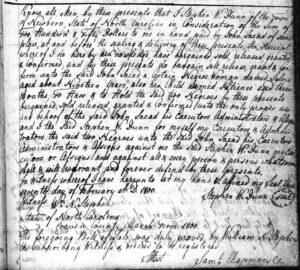 Know all Men by these presents that I Stephen W. Dunn of the Town
of Newbern State of North Carolina in Consideration of the Sum
Two Hundred & Fifty Dollars to me in hand paid by John Snead of same
place, at and before the sealing & delivery of these presents, the Receipt
whereof I do hereby acknowledge, have bargained sold released granted
& confirmed, and by these presents do bargain sell release grant & con
firm unto the said John Snead a certain Negroe Woman Named
aged about Nineteen Years, also her Child Named Patience aged three
Months To Have & to Hold the said two Negroes by these presents
bargained, sold, released, granted & confirmed unto the only proper use
and behoof of the said John Snead his Executors Administrators & Assigns
And I the said Stephen W. Dunn for myself my Executors & Adminis
trators the said two Negroes unto the said John Snead his Executors
Administrators & Assigns against me the said Stephen W. Dunn my Exe
cutors or Assigns and against all & every person & persons whatsoever
shall & will warrant and forever defend by these presents.
In witness whereof I have hereunto set my hand & affixed my Seal this
day of February A.D. 1800.
Witness Stephen W. Dunn (Seal)
Wm. H. Stephens
State of North Carolina
Craven County March Term 1800.
The foregoing Bill of Sale was duly proved by William H. Stephens
the subscribing Witness & ordered to be registered
Attest
Saml. Chapman, Ck